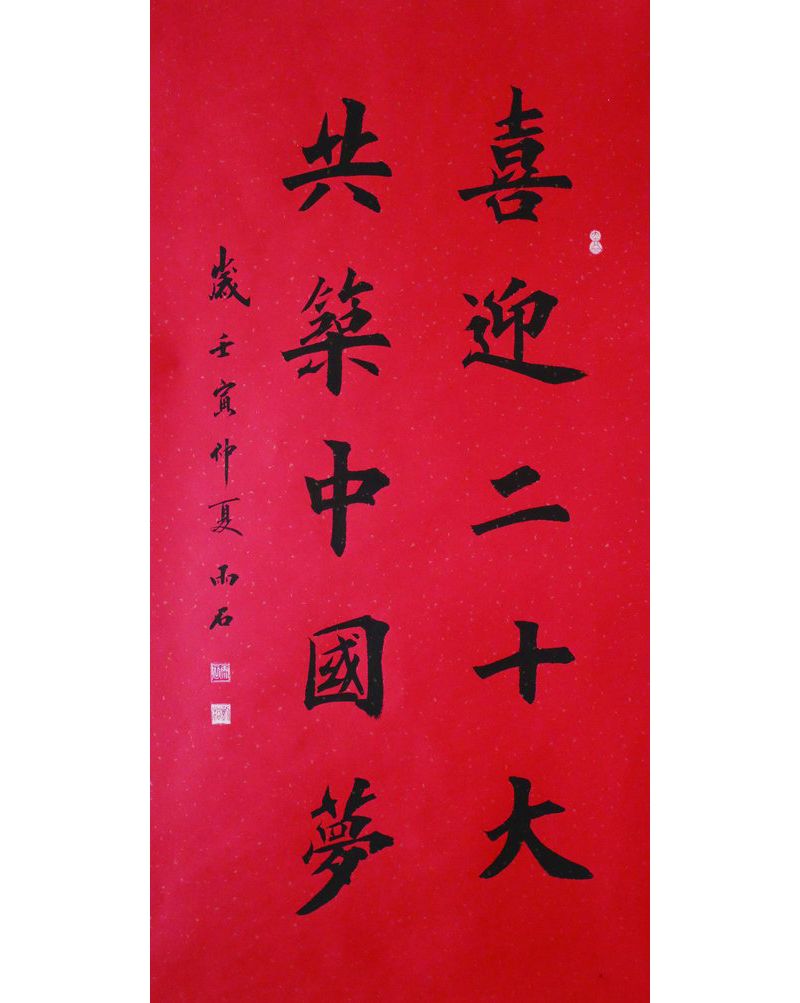 喜迎二十大
共築中國夢
歲壬寅仲夏雨石